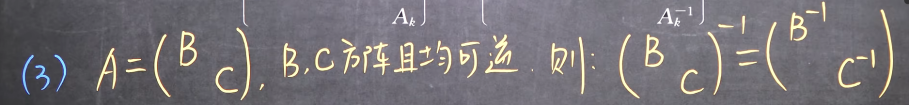 A_k A_k^{-1}
(3) A=(B C), B,C方阵且均可逆.则: (B C)^{-1}=(B^{-1} C^{-1})